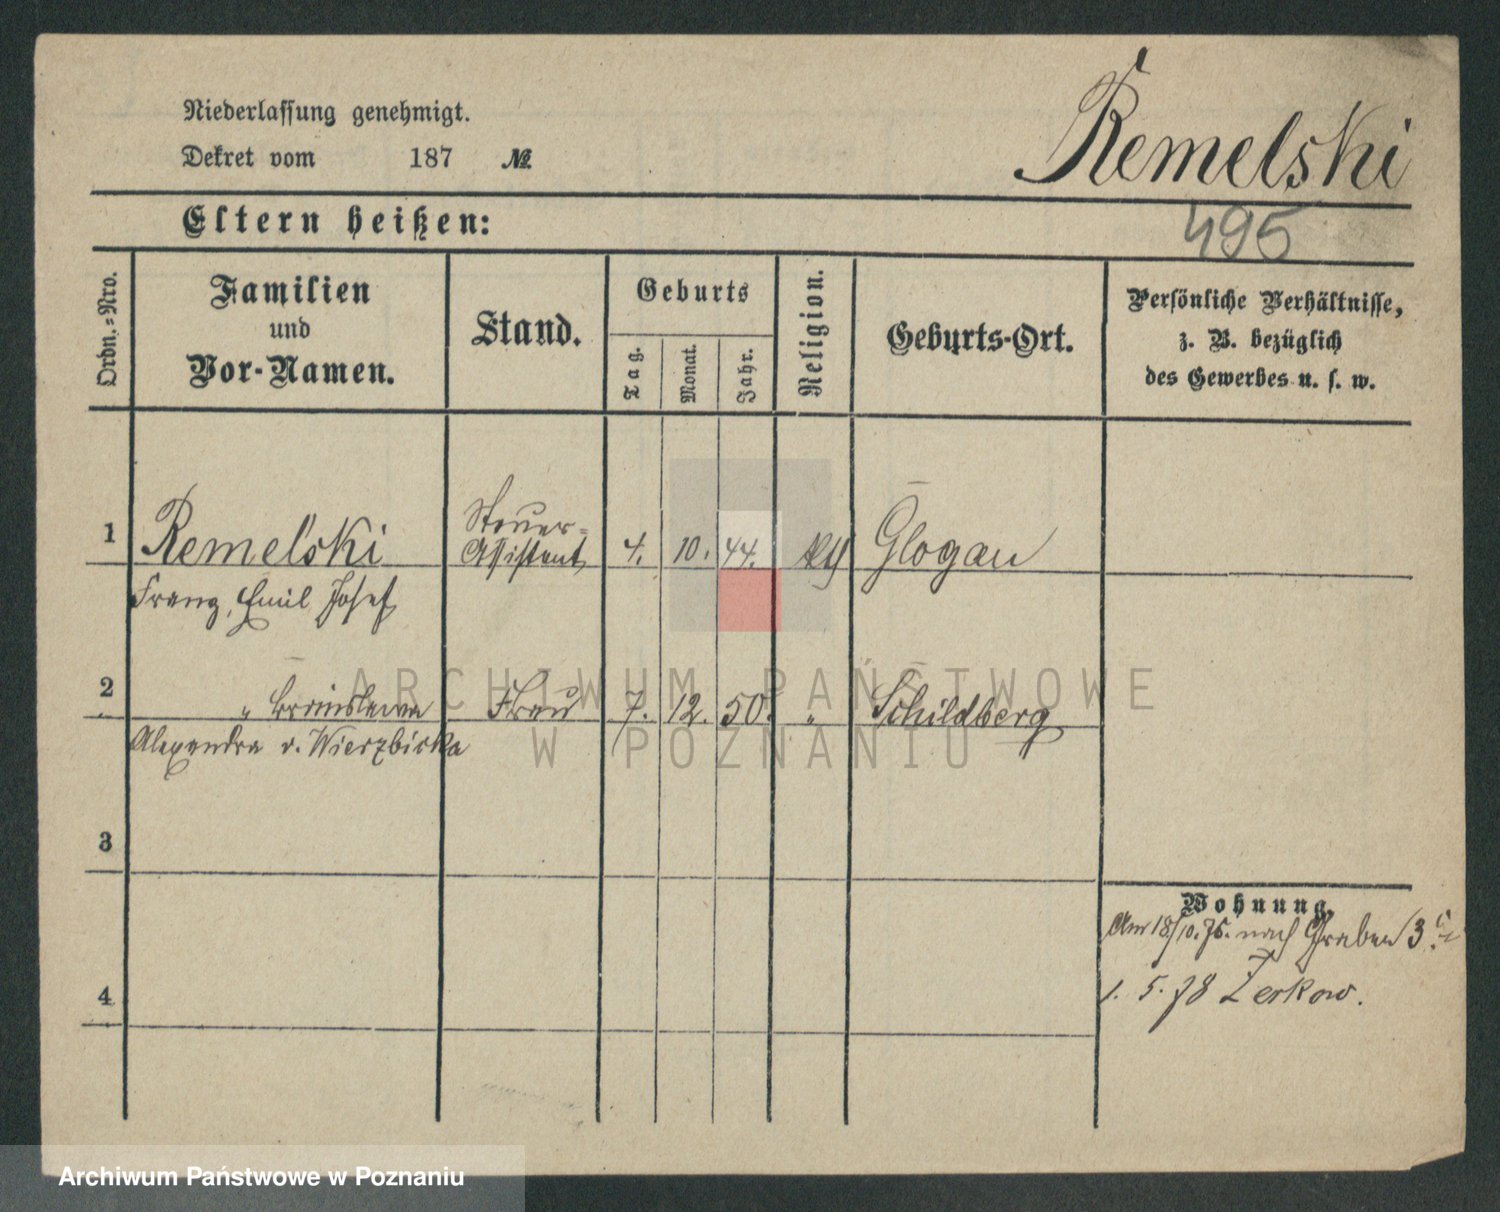 Niederlassung genehmigt.
Dekret vom 187 №
Remelski
495
Eltern heißen:
Ordn.=Nro.
Familien
und
Vor-Namen.
Stand.
Geburts
Tag.
Monat.
Jahr.
Religion.
Geburts-Ort.
Persönliche Verhältnisse,
z. B. bezüglich
des Gewerbes u. s. w.
1 Remelski Steuer=
Assistent 4. 10. 44. kth Glogau
Franz, Emil Josef
2 " Bronislawa Frau 7. 12. 50. " Schildberg
Alexandra v. Wierzbicka
3
4
Wohnung.
Am 18/10.76. nach Graben 3
1. 5. 78 Zerkow.
ARCHIWUM PAŃSTWOWE
W POZNANIU
Archiwum Państwowe w Poznaniu